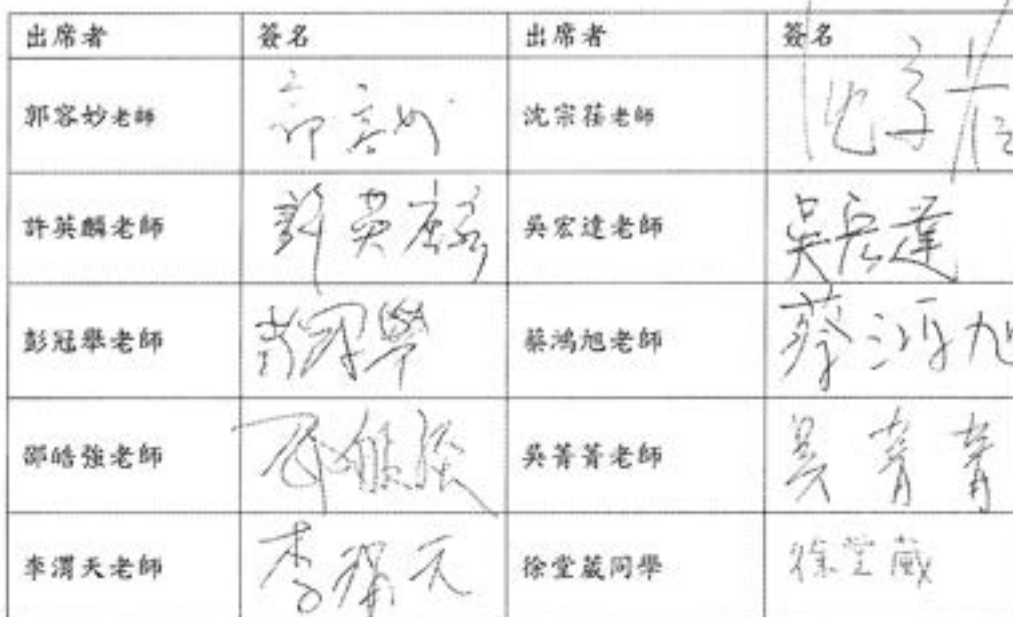 出席者 簽名 出席者 簽名
郭容妙老師 郭容妙 沈宗荏老師 沈宗荏
許英麟老師 許英麟 吳宏達老師 吳宏達
彭冠舉老師 彭冠舉 蔡鴻旭老師 蔡鴻旭
邵皓強老師 邵皓強 吳菁菁老師 吳菁菁
李渭天老師 李渭天 徐堂葳同學 徐堂葳